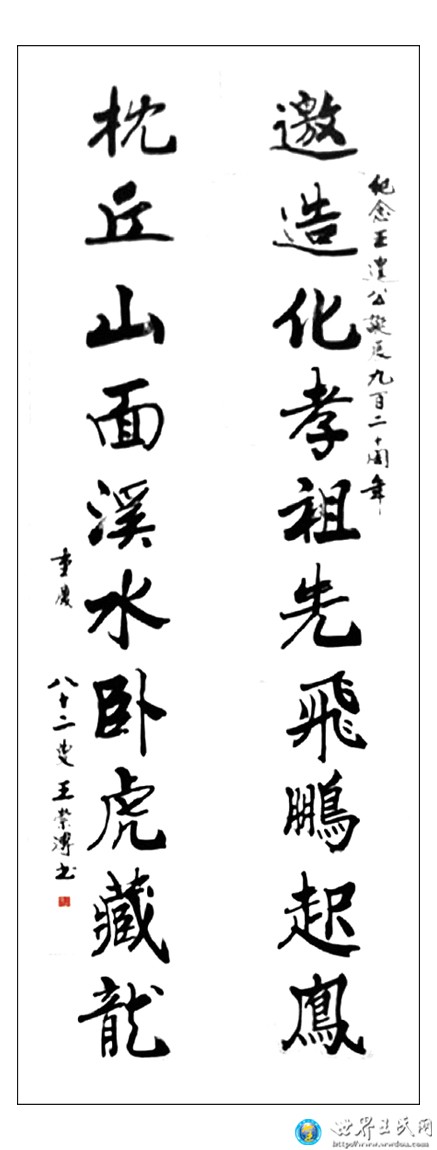 纪念王遗公誕辰九百二十周年
邀造化孝祖先飛鵬起鳳
枕丘山面溪水卧虎藏龍
重慶
八十二叟王崇溥书
世界王氏网
http://www.wwdoa.com